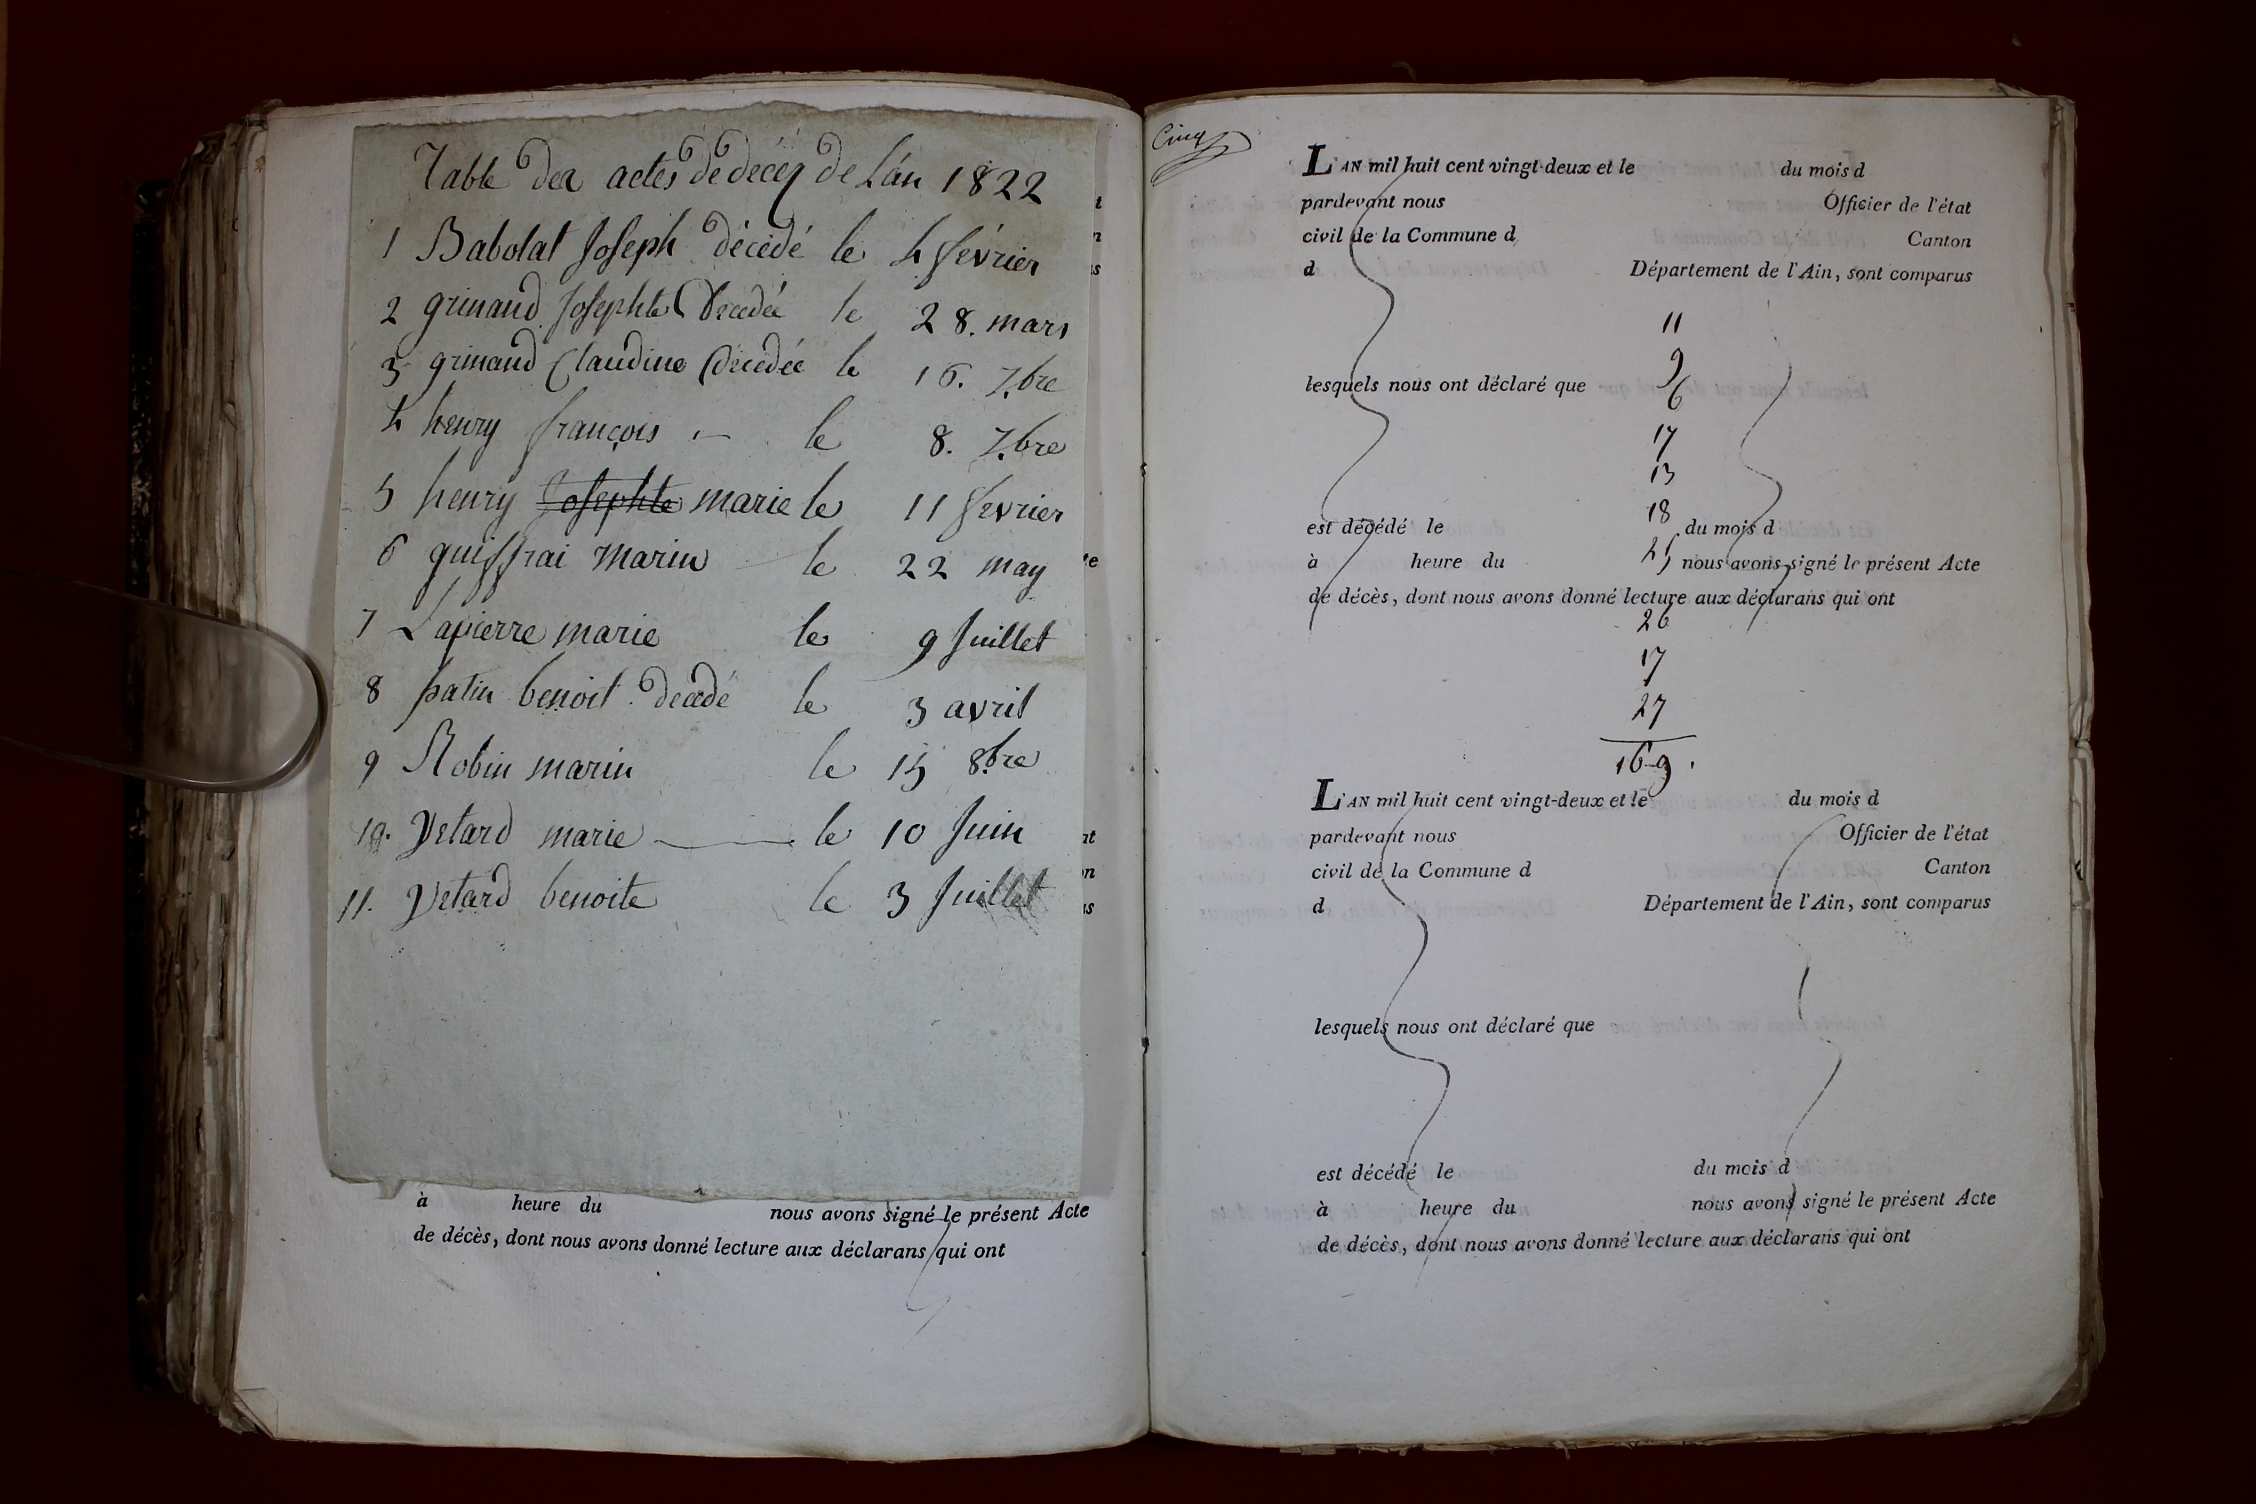 Table des actes de décès de L'an 1822
1 Babolat Joseph décédé le 4 février
2 grinand Josephte Décédée le 28. mars
3 grinand Claudine Décédée le 16. 7.bre
4 henry françois — le 8. 7.bre
5 henry Josephte marie le 11 février
6 guiffrai marin le 22 may
7 Lapierre marie le 9 Juillet
8 patin benoit décédé le 3 avril
9 Robin marin le 15 8.bre
10. Vetard marie — le 10 Juin
11. Vetard benoite le 3 Juillet
à heure du nous avons signé le présent Acte
de décès, dont nous avons donné lecture aux déclarans qui ont
Cinq
L'AN mil huit cent vingt-deux et le du mois d
pardevant nous Officier de l'état
civil de la Commune d Canton
d Département de l'Ain, sont comparus
11
9
lesquels nous ont déclaré que
6
17
13
18
est décédé le du mois d
à heure du 25 nous avons signé le présent Acte
de décès, dont nous avons donné lecture aux déclarans qui ont
26
17
27
169.
L'AN mil huit cent vingt-deux et le du mois d
pardevant nous Officier de l'état
civil de la Commune d Canton
d Département de l'Ain, sont comparus
lesquels nous ont déclaré que
est décédé le du mois d
à heure du nous avons signé le présent Acte
de décès, dont nous avons donné lecture aux déclarans qui ont